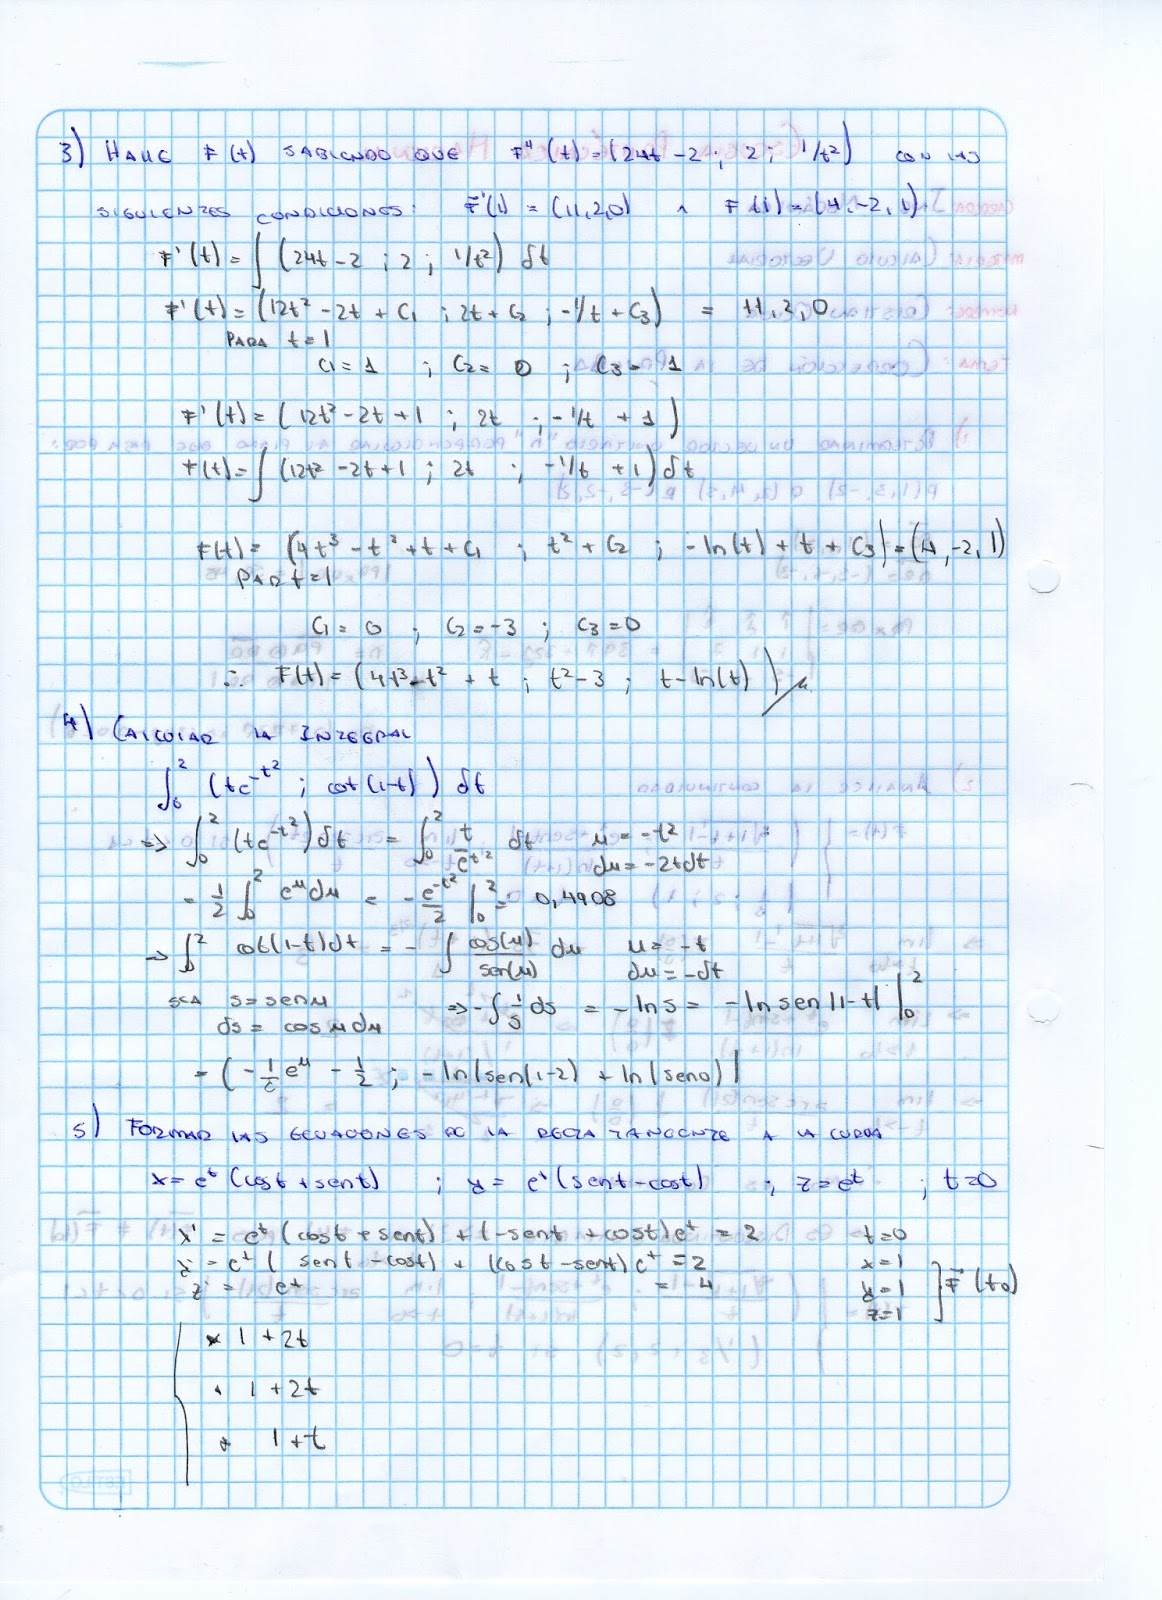 3) HALLE F(t) SABIENDO QUE F''(t) = (24t - 2 ; 2 ; 1/t²) CON LAS
SIGUIENTES CONDICIONES: F'(1) = (11,2,0) ∧ F(1) = (4,-2,1)
F'(t) = ∫ (24t - 2 ; 2 ; 1/t²) dt
F'(t) = (12t² - 2t + C1 ; 2t + C2 ; -1/t + C3) = 11,2,0
PARA t = 1
C1 = 1 ; C2 = 0 ; C3 = 1
F'(t) = (12t² - 2t + 1 ; 2t ; -1/t + 1)
F(t) = ∫ (12t² - 2t + 1 ; 2t ; -1/t + 1) dt
F(t) = (4t³ - t² + t + C1 ; t² + C2 ; -ln(t) + t + C3) = (4,-2,1)
PAR t = 1
C1 = 0 ; C2 = -3 ; C3 = 0
∴ F(t) = (4t³ - t² + t ; t² - 3 ; t - ln(t))
4) CALCULAR LA INTEGRAL
∫₀² (te^-t² ; cot(1-t)) dt
=> ∫₀² (te^-t²) dt = ∫₀² t/e^t² dt u = -t²
du = -2tdt
= 1/2 ∫₀² e^u du = - e^-t²/2 |₀² = 0,4908
-> ∫₀² cot(1-t) dt = - ∫ cos(u)/sen(u) du u = -t
du = -dt
SEA s = sen u => - ∫ 1/s ds = - ln s = - ln sen |1-t| |₀²
ds = cos u du
= (- 1/2 e^u - 1/2 ; - ln|sen(1-2) + ln|sen0)|
5) FORMAR LAS ECUACIONES DE LA RECTA TANGENTE A LA CURVA
x = e^t (cost + sent) ; y = e^t (sent - cost) ; z = e^t ; t = 0
x' = e^t (cost + sent) + (-sent + cost) e^t = 2 t = 0
y' = e^t (sent - cost) + (cost - sent) e^t = 2 x = 1
z' = e^t = 4 y = 1
z = 1 F(t0)
x 1 + 2t
1 + 2t
1 + t